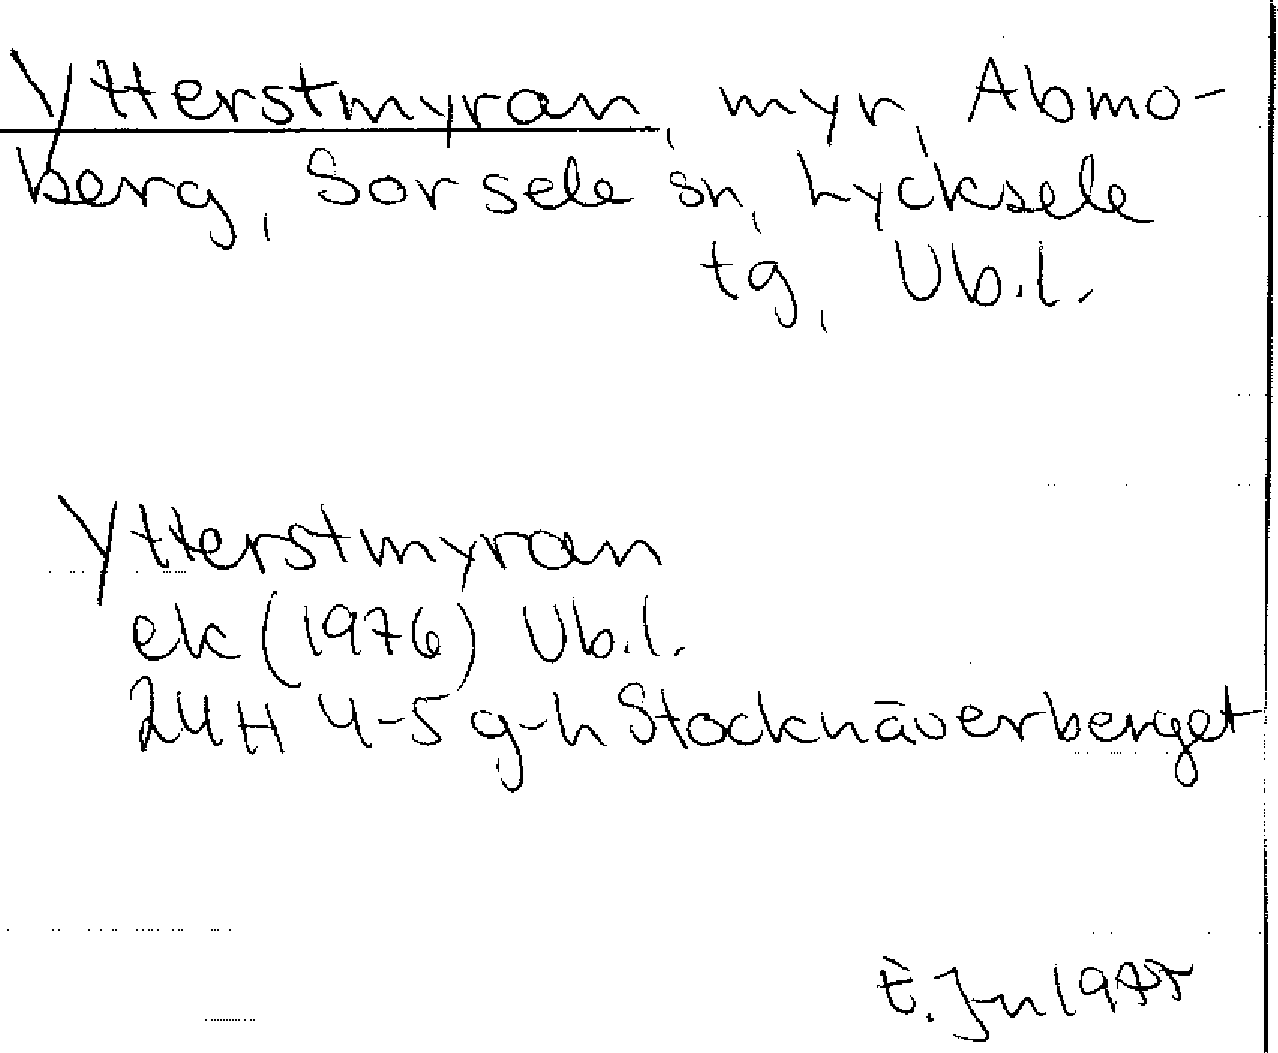 Ytterstmyran, myr, Abmo-
berg, Sorsele sn, Lycksele
tg, Vb.l.
Ytterstmyran
ek (1976) Vb.l.
24H 4-5 g-h Stocknäverberget
E. Jn